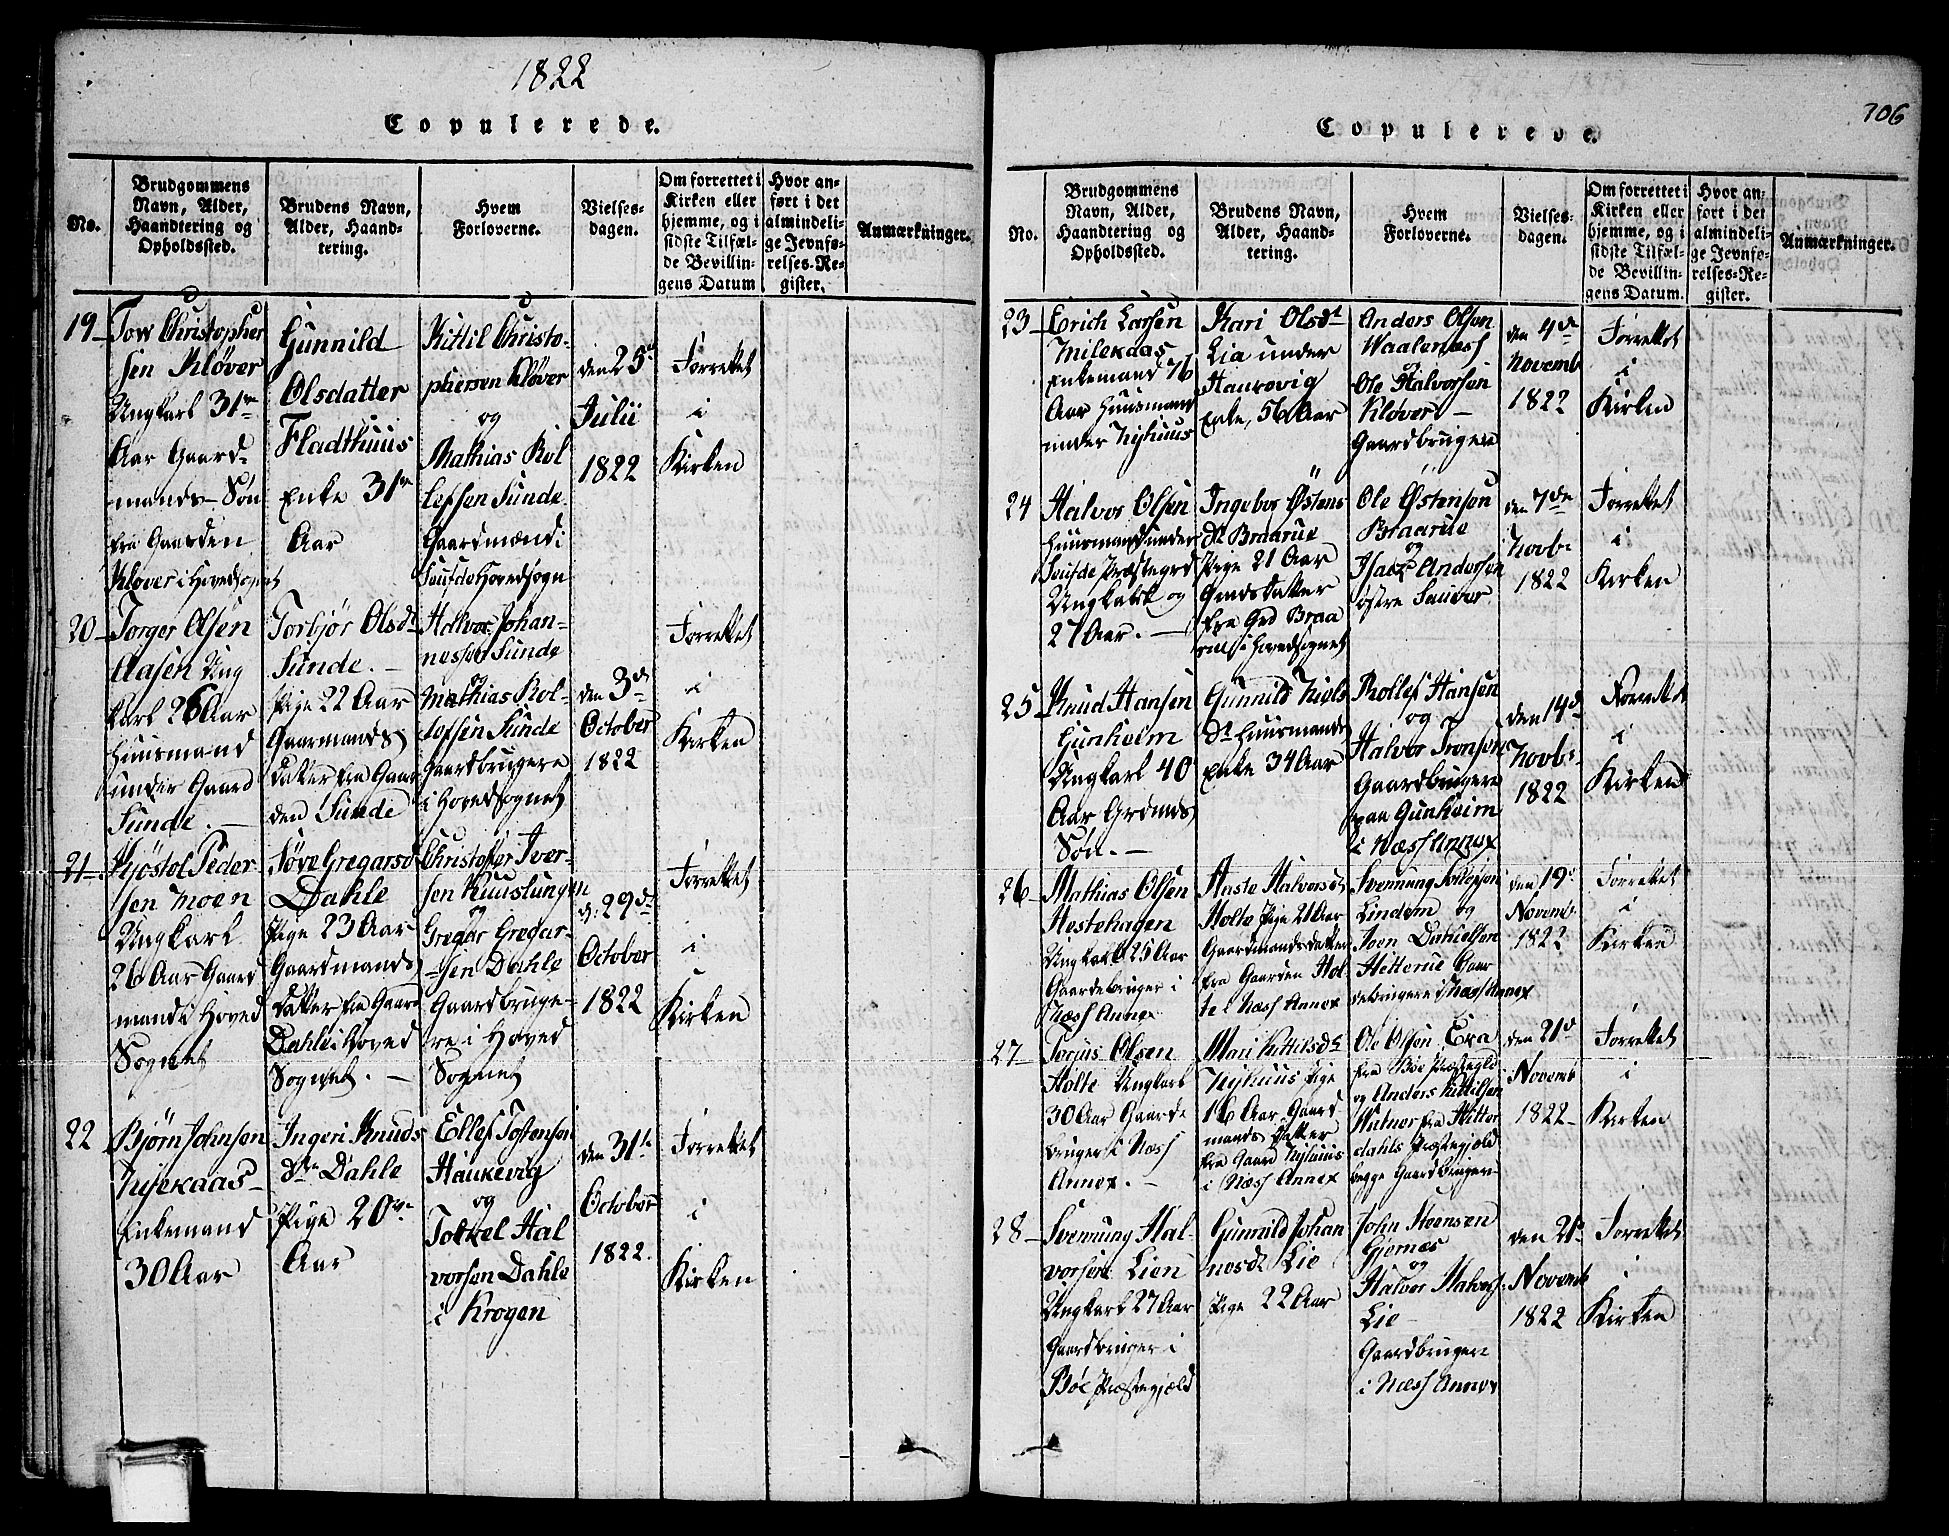 1822
Copulerede.
No.
Brudgommens
Navn, Alder,
Haandtering og
Opholdssted.
Brudens Navn,
Alder, Haand-
tering.
Hvem
Forloverne.
Vielses-
dagen.
Om forrettet i
Kirken eller
hjemme, og i
sidste Tilfæl-
de Bevillin-
gens Datum
Hvor an-
ført i det
almindeli-
ge Jevnfø-
relses-Re-
gister.
Anmærkninger.
19
Tov Christopher
sen Kløver
Ungkarl 31te
Aar Gaard-
mands Søn
fra Gaarden
Kløver i Hovedsognet
Gunnild
Olsdatter
Fladthuus
Enke 31te
Aar
Kittil Christo-
phersen Kløver
og
Mathias Rol
lefsen Sunde
Gaardmænd i
Soufde Hovedsogn
den 25d
Julii
1822
Forrettet
i
Kirken
20
Torger Olsen
Aasen Ung
karl 26 Aar
Huusmand
under Gaard
Sunde.
Torbjør Olsdt
Sunde.
Pige 22 Aar
Gaarmands
Datter fra Gaar
den Sunde
Halvor Johan-
nessen Sunde
og
Mathias Rol-
lofsen Sunde
Gaardbrugere
i Hovedsognet
den 3de
October
1822
Forrettet
i
Kirken
21
Kjøstol Peder
sen Moen
Ungkarl
26 Aar Gaard
mand i Hoved
Sognet
Tøve Gregarsd
Dahle
Pige 23 Aar
Gaardmands
Datter fra Gaard
Dahle i Hoved
Sognet.
Christoffer Iver-
sen Kuuslungen
og
Gregar Gregar-
sen Dahle
Gaardbruge-
re i Hoved
Sognet
d: 29d
October
1822
Forrettet
i
Kirken
22
Bjørn Johnsen
Mjekaas
Enkemand
30 Aar
Ingeri Knuds
dtr Dahle
Pige 20ve
Aar
Ellef Tostensen
Haukevig
og
Torkel Hal
vorsen Dahle
i Krogen
den 31te
October
1822.
Forrettet
i
Kirken
706
Copulerede.
No.
Brudgommens
Navn, Alder,
Haandtering og
Opholdssted.
Brudens Navn,
Alder, Haand-
tering.
Hvem
Forloverne.
Vielses-
dagen.
Om forrettet i
Kirken eller
hjemme, og i
sidste Tilfæl-
de Bevillin-
gens Datum.
Hvor an-
ført i det
almindeli-
ge Jevnfø-
relses-Re-
gister.
Anmærkninger.
23
Erich Larsen
Milekaas
Enkemand 76
Aar Huusmand
under Nyhuus
Kari Olsdt
Lia under
Haukovig
Enke, 56 Aar
Anders Olsen
Waalernæss
og
Ole Halvorsen
Kløver
Gaardbrugere
den 4de
Novemb
1822
Forrettet
i
Kirken
24
Halvor Olsen
Huusmand under
Soufde Præstegrd
Ungkarl og
27 Aar.
Ingebor Østens
Dt Braarue
Pige 21 Aar
Gmds Datter
fra Grd Braa
rue i Hovedsognet
Ole Østensen
Braarue
og
Isack Andersen
østre Sauver
den 7de
Novbr
1822
Forrettet
i
Kirken
25
Knud Hansen
Gunheim
Ungkarl 40
Aar Grdmds
Søn.
Gunnild Niels
Dt Huusmands
Enke 34 Aar
Rollef Hansen
og
Halvor Tronsen
Gaardbrugere
paa Gunheim
i Næss Annex
den 14d
Novbr
1822
Forrettet
i
Kirken
26
Mathias Olsen
Hestehagen
Ungkarl 25 Aar
Gaardebruger i
Næss Annex
Aaste Halvorsdt
Holte Pige 21 Aar
Gaardmandsdatter
fra Gaarden Hol
te i Næss Annex
Svennung
Lindem og
Joen Danielsen
Hetterue Gaar
debrugere i Næss Annex
den 19d
Novemb
1822
Forrettet
i
Kirken
27
Torjus Olsen
Holte Ungkarl
30 Aar Gaarde
bruger i Næss
Annex.
Mari Kittilsdt
Nyhuus Pige
16 Aar Gaard
mands Datter
fra Gaard Nyhuus
i Næss Annex
Ole Olsen Eva
fra Bøe Præstegld
og Anders Kittilsen
Hutner fra Hitter
dahls Præstegjæld
begge Gaardbrugere
den 21d
Novemb
1822
Forrettet
i
Kirken
28
Svennung Hal-
vorsen Lien
Ungkarl 27 Aar
Gaardbruger i
Bøe Præstegjæld
Gunnild Johan
nesdt Lie
Pige 22 Aar
John Steensen
Gjernæs
og
Halvor Halvors.
Lie
Gaardbrugere
i Næss Annex
den 21d
Novemb
1822
Forrettet
i
Kirken